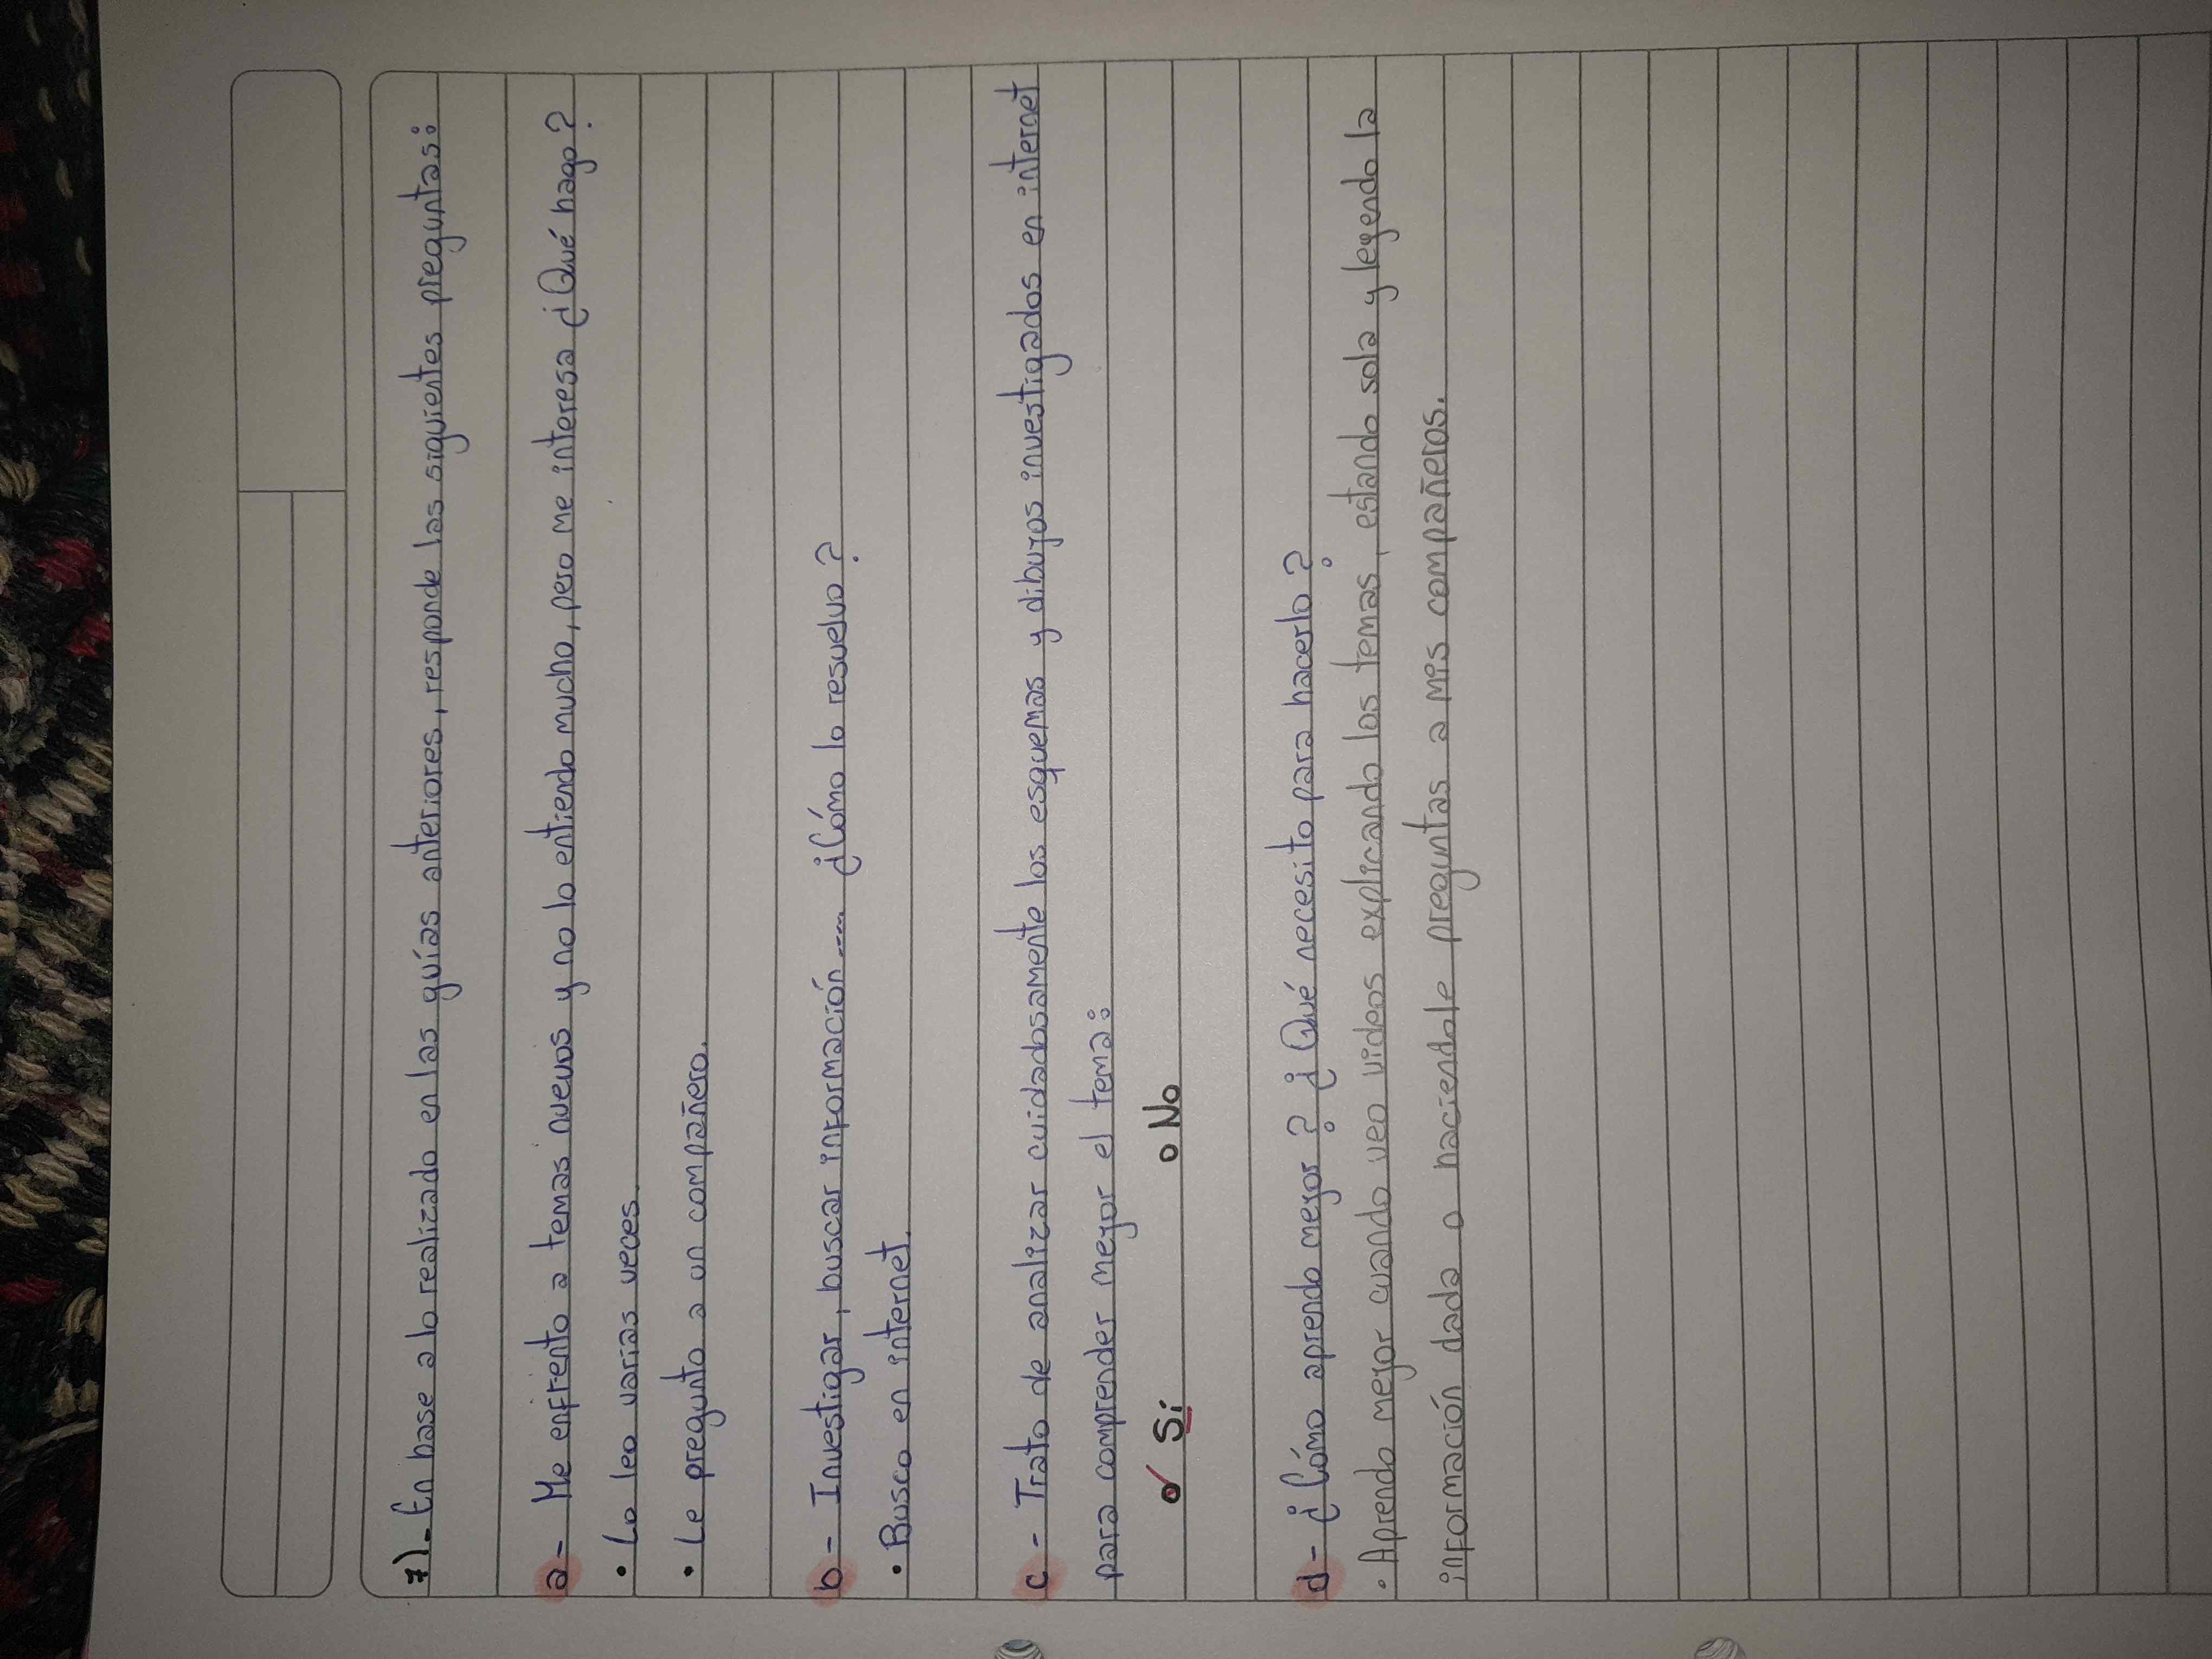 7).- En base a lo realizado en las guías anteriores, responde las siguientes preguntas:
a- Me enfrento a temas nuevos y no lo entiendo mucho, pero me interesa ¿Qué hago?
• Lo leo varias veces.
• Le pregunto a un compañero.
b- Investigar, buscar información..... ¿Cómo lo resuelvo?
• Busco en internet.
c- Trato de analizar cuidadosamente los esquemas y dibujos investigados en internet
para comprender mejor el tema:
o Sí o No
d- ¿Cómo aprendo mejor? ¿Qué necesito para hacerlo?
• Aprendo mejor cuando veo videos explicando los temas, estando sola y leyendo la
información dada o haciendale preguntas a mis compañeros.